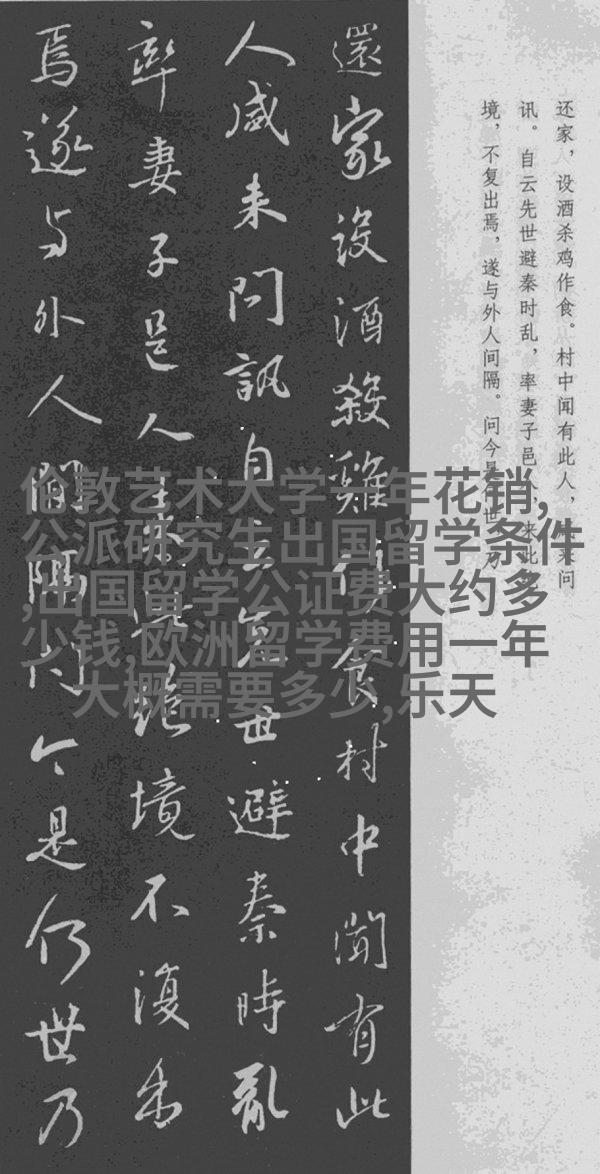 还家，设酒杀鸡作食。村中闻有此人，咸来问
讯。自云先世避秦时乱，率妻子邑人，来此绝
境，不复出焉，遂与外人间隔。问今是何世，乃
還家設酒殺雞作食村中聞有此
人咸来問訊自云先世避秦時亂
率妻子邑人来此絶境不復出
焉遂与外人間隔问今是何世乃
伦敦艺术大学一年花销,
公派研究生出国留学条件
,出国留学公证费大约多
少钱,欧洲留学费用一年
大概需要多少,乐天